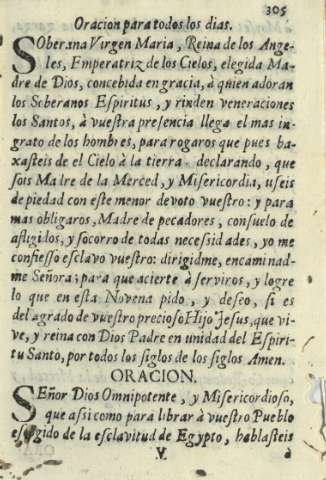 305
Oracion para todos los dias.
SOberana Virgen Maria, Reina de los Ange-
les, Emperatriz de los Cielos, elegida Ma-
dre de Dios, concebida en gracia, à quien adoran
los Soberanos Espiritus, y rinden veneraciones
los Santos, à vuestra presencia llega el mas in-
grato de los hombres, para rogaros que pues ba-
xasteis de el Cielo à la tierra declarando, que
sois Madre de la Merced, y Misericordia, useis
de piedad con este menor devoto vuestro: y para
mas obligaros, Madre de pecadores, consuelo de
afligidos, y socorro de todas necessidades, yo me
confiesso esclavo vuestro: dirigidme, encaminad-
me Señora; para que acierte à serviros, y logre
lo que en esta Novena pido, y deseo, si es
del agrado de vuestro precioso Hijo Jesus, que vi-
ve, y reina con Dios Padre en unidad del Espiri-
tu Santo, por todos los siglos de los siglos Amen.
ORACION.
SEñor Dios Omnipotente, y Misericordioso,
que assi como para librar à vuestro Pueblo
escogido de la esclavitud de Egypto, hablasteis
V à